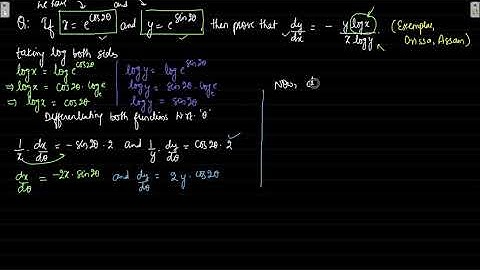 we have and
Q: If x = e^cos2θ and y = e^sin2θ, then prove that dy/dx = - y logx / x logy (Exemplar, Orissa, Assam)
taking log both sides
logx = log e^cos2θ
logy = log e^sin2θ
⇒ logx = cos2θ · loge e
logy = sin2θ · loge e
⇒ logx = cos2θ
logy = sin2θ
Differentiating both functions w.r. 'θ'
1/x · dx/dθ = - sin2θ · 2 and 1/y · dy/dθ = cos2θ · 2
dx/dθ = -2x · sin2θ and dy/dθ = 2y · cos2θ
Now,